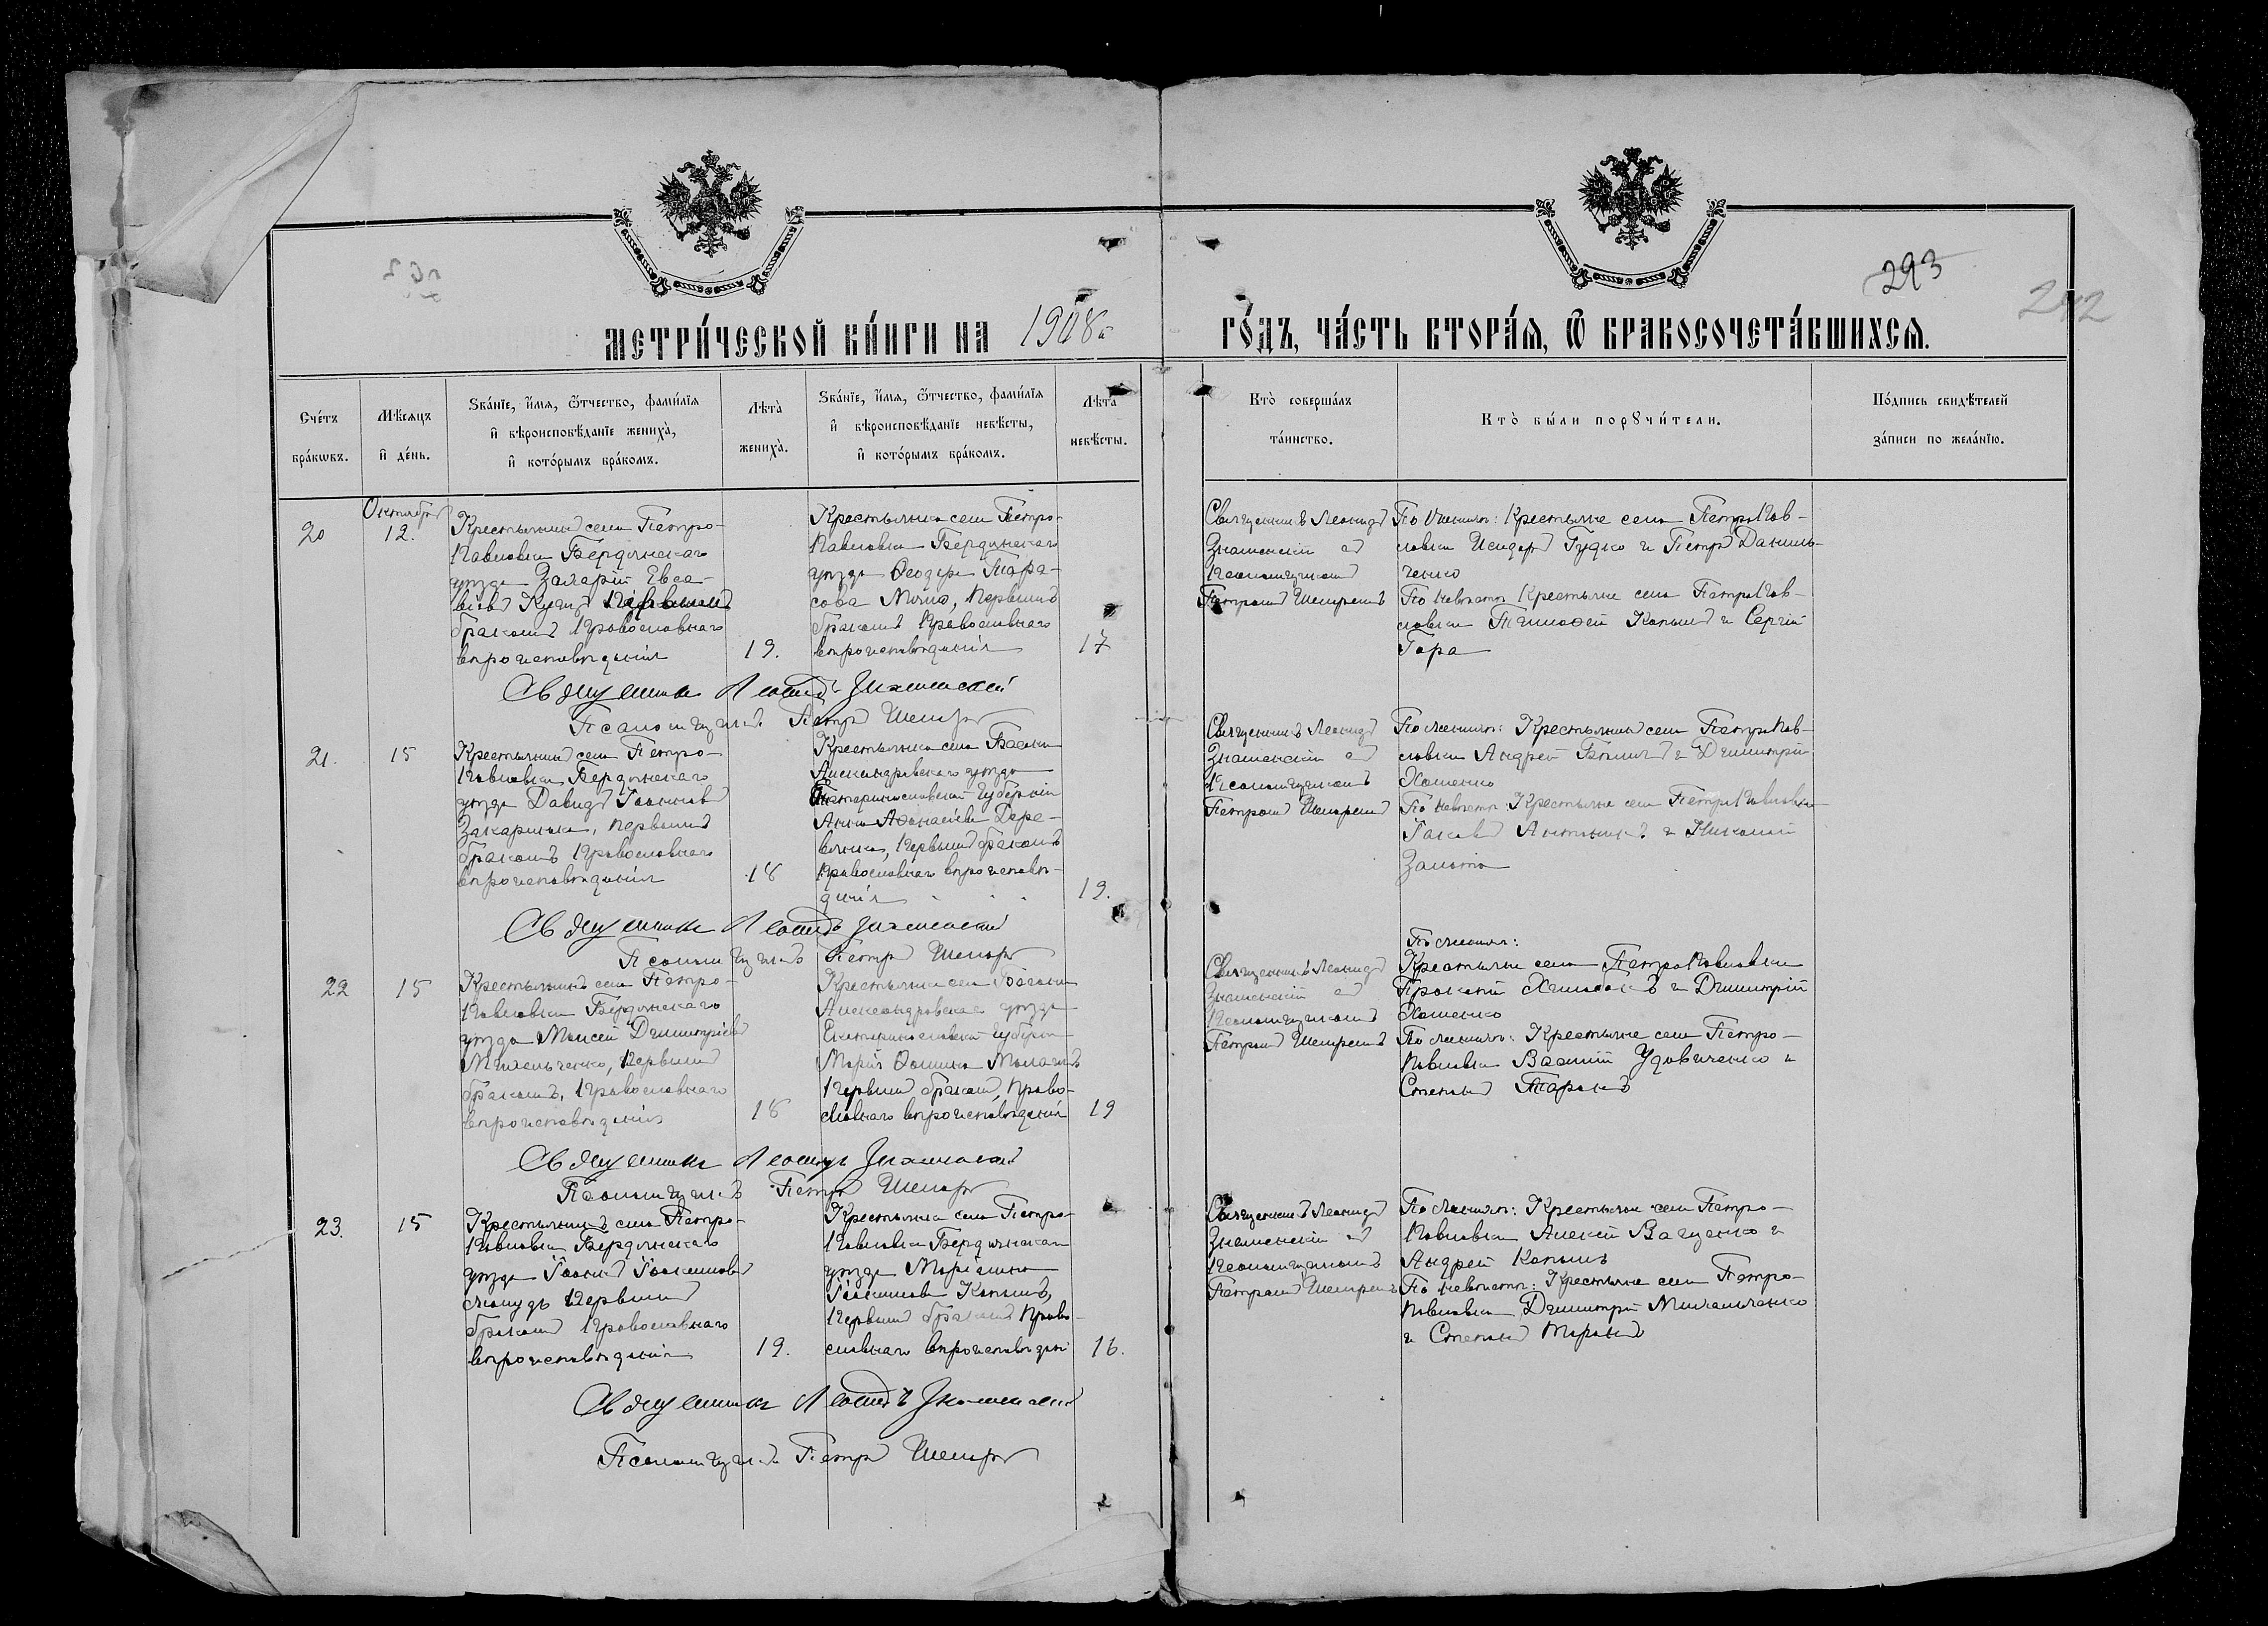 293
242
МЕТРИ́ЧЕСКОЙ КНИ́ГИ НА 1908й ГО́ДЪ, ЧА́СТЬ ВТОРА́Я, Ѿ БРАКОСОЧЕТА́ВШИХСЯ.
Сче́тъ бра́кѡвъ.
Мѣ́сяцъ и де́нь.
Ѕва́нїе, и́мя, ѻ́тчество, фами́лїя и вѣроисповѣ́данїе жениха̀, и кото́рымъ бра́комъ.
Лѣта̀ жениха̀.
Ѕва́нїе, и́мя, ѻ́тчество, фами́лїя и вѣроисповѣ́данїе невѣ́сты, и кото́рымъ бра́комъ.
Лѣта̀ невѣ́сты.
Кто̀ соверша́лъ та́инство.
Кто̀ бы́ли порꙋчи́тели.
По́дпись свидѣ́телей за́писи по жела́нїю.
Октября
20
12.
Крестьянинъ села Петро-
Павловки Бердянскаго
уезда Захарій Евса-
бракомъ Православнаго
вѣроисповѣданія
19.
Крестьянка села Петро-
Павловки Бердянскаго
уезда Ѳеодора Тара-
сова первымъ
бракомъ Православнаго
вѣроисповѣданія
17
Священникъ Леонидъ
Знаменскій съ
Псаломщикомъ
Петромъ
По женихѣ: Крестьяне села ПетроПав-
ловки Исидоръ Гудко и Петръ Даниль-
ченко
По невѣстѣ Крестьяне села ПетроПав-
ловки Тимоѳей Копылъ и Сергій
Гора
Священникъ Леонидъ Знаменскій
Псаломщикъ Петръ
21.
15
Крестьянинъ села Петро-
Павловки Бердянскаго
уезда Давидъ Іоанновъ
первымъ
бракомъ Православнаго
вѣроисповѣданія
18
Крестьянка села Басани
Александровскаго уезда
Екатеринославской Губерніи
Анна Аѳанасіева Дере-
вянко, Первымъ бракомъ
Православнаго вѣроисповѣ-
данія
19.
Священникъ Леонидъ
Знаменскій съ
Псаломщикомъ
Петромъ
По женихѣ: Крестьянинъ села ПетроПав-
ловки Андрей и Димитрій
Хоменко
По невѣстѣ: Крестьяне села ПетроПавловки
Іаковъ и Николай
Священникъ Леонидъ Знаменскій
Псаломщикъ Петръ
22
15
Крестьянинъ села Петро-
Павловки Бердянскаго
уезда Моисей Димитріевъ
Михельченко, Первымъ
бракомъ, Православнаго
вѣроисповѣданія
18
Крестьянка села Басани
Александровскаго уезда
Екатеринославской губерніи
Марія Ѳомина
Первымъ бракомъ, Право-
славнаго вѣроисповѣданія
19
Священникъ Леонидъ
Знаменскій съ
Псаломщикомъ
Петромъ
По женихѣ:
Крестьяне села ПетроПавловки
и Димитрій
Хоменко
По женихѣ: Крестьяне села Петро-
Павловки Василій Удовиченко и
Стефанъ Таранъ
Священникъ Леонидъ Знаменскій
Псаломщикъ Петръ
23.
15
Крестьянинъ села Петро-
Павловки Бердянскаго
уезда Іоаннъ Іоакимовъ
Первымъ
бракомъ Православнаго
вѣроисповѣданія
19.
Крестьянка села Петро-
Павловки Бердянскаго
уезда
Копылъ,
Первымъ бракомъ Право-
славнаго вѣроисповѣдан
16.
Священникъ Леонидъ
Знаменскій съ
Псаломщикомъ
Петромъ
По женихѣ: Крестьяне села Петро-
Павловки Алексій Ващенко и
Андрей Копылъ
По невѣстѣ: Крестьяне села Петро-
Павловки Димитрій Михельченко
и Стефанъ Таранъ
Священникъ Леонидъ Знаменскій
Псаломщикъ Петръ